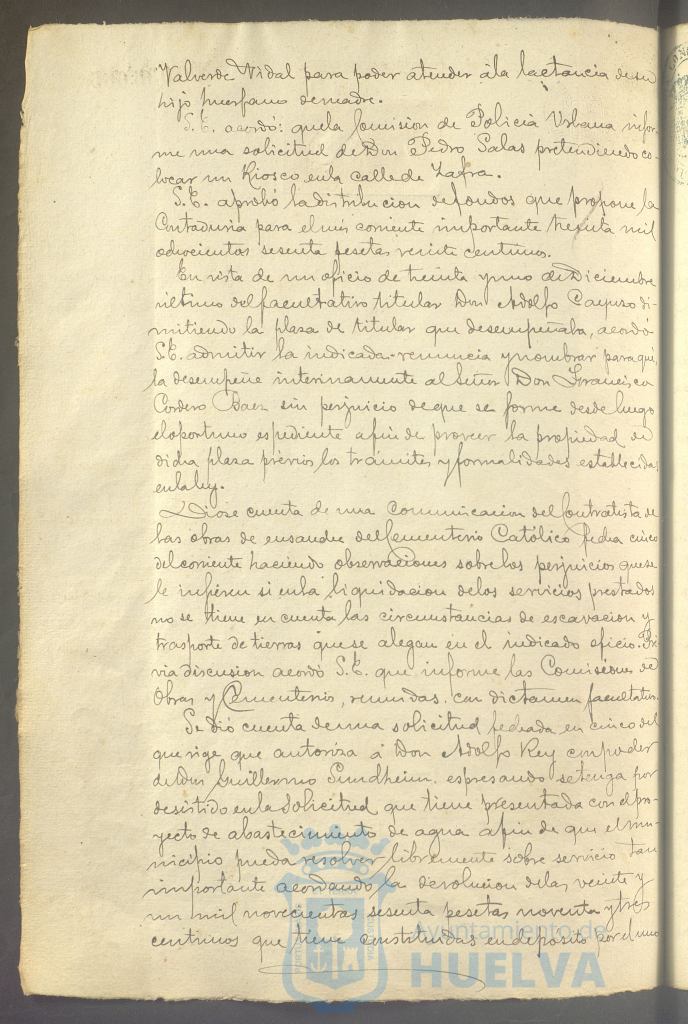 Valverde Vidal para poder atender á la lactancia de su
hijo huerfano de madre.
S. E. acordó: que la Comision de Policia Urbana infor-
me una solicitud de Don Pedro Salas pretendiendo co-
locar un Kiosco en la calle de Zafra.
S. E. aprobó la distribucion de fondos que propone la
Contaduria para el mes corriente importante treinta mil
ochocientos sesenta pesetas veinte centimos.
En vista de un oficio de treinta y uno de Diciembre
último del facultativo titular Don Adolfo di-
mitiendo la plaza de titular que desempeñaba, acordó
S. E. admitir la indicada renuncia y nombrar para que
la desempeñe interinamente al Señor Don Francisco
Cordero Baez sin perjuicio de que se forme desde luego
el oportuno espediente á fin de proveer la propiedad de
dicha plaza prévios los trámites y formalidades establecidas
en la ley.
Diose cuenta de una comunicacion del Contratista de
las obras de ensanche del Cementerio Católico fecha cinco
del corriente haciendo observaciones sobre los perjuicios que se
le infieren si en la liquidacion de los servicios prestados
no se tiene en cuenta las circunstancias de escavacion y
trasporte de tierras que se alegan en el indicado oficio. Pré-
via discusion acordó S. E. que informe las Comisiones de
Obras y Cementerios, reunidas con dictamen facultativo.
Se dió cuenta de una solicitud fechada en cinco del
que rige que autoriza á Don Adolfo Rey con poder
de Don Guillermo Sundheim, espresando se tenga por
desistido en la Solicitud que tiene presentada con el pro-
yecto de abastecimiento de agua á fin de que el mu-
nicipio pueda resolver libremente sobre servicio tan
importante acordando la devolucion de las veinte y
un mil novecientas sesenta pesetas noventa y tres
centimos que tiene constituidas en deposito por el uno
Ayuntamiento de
HUELVA